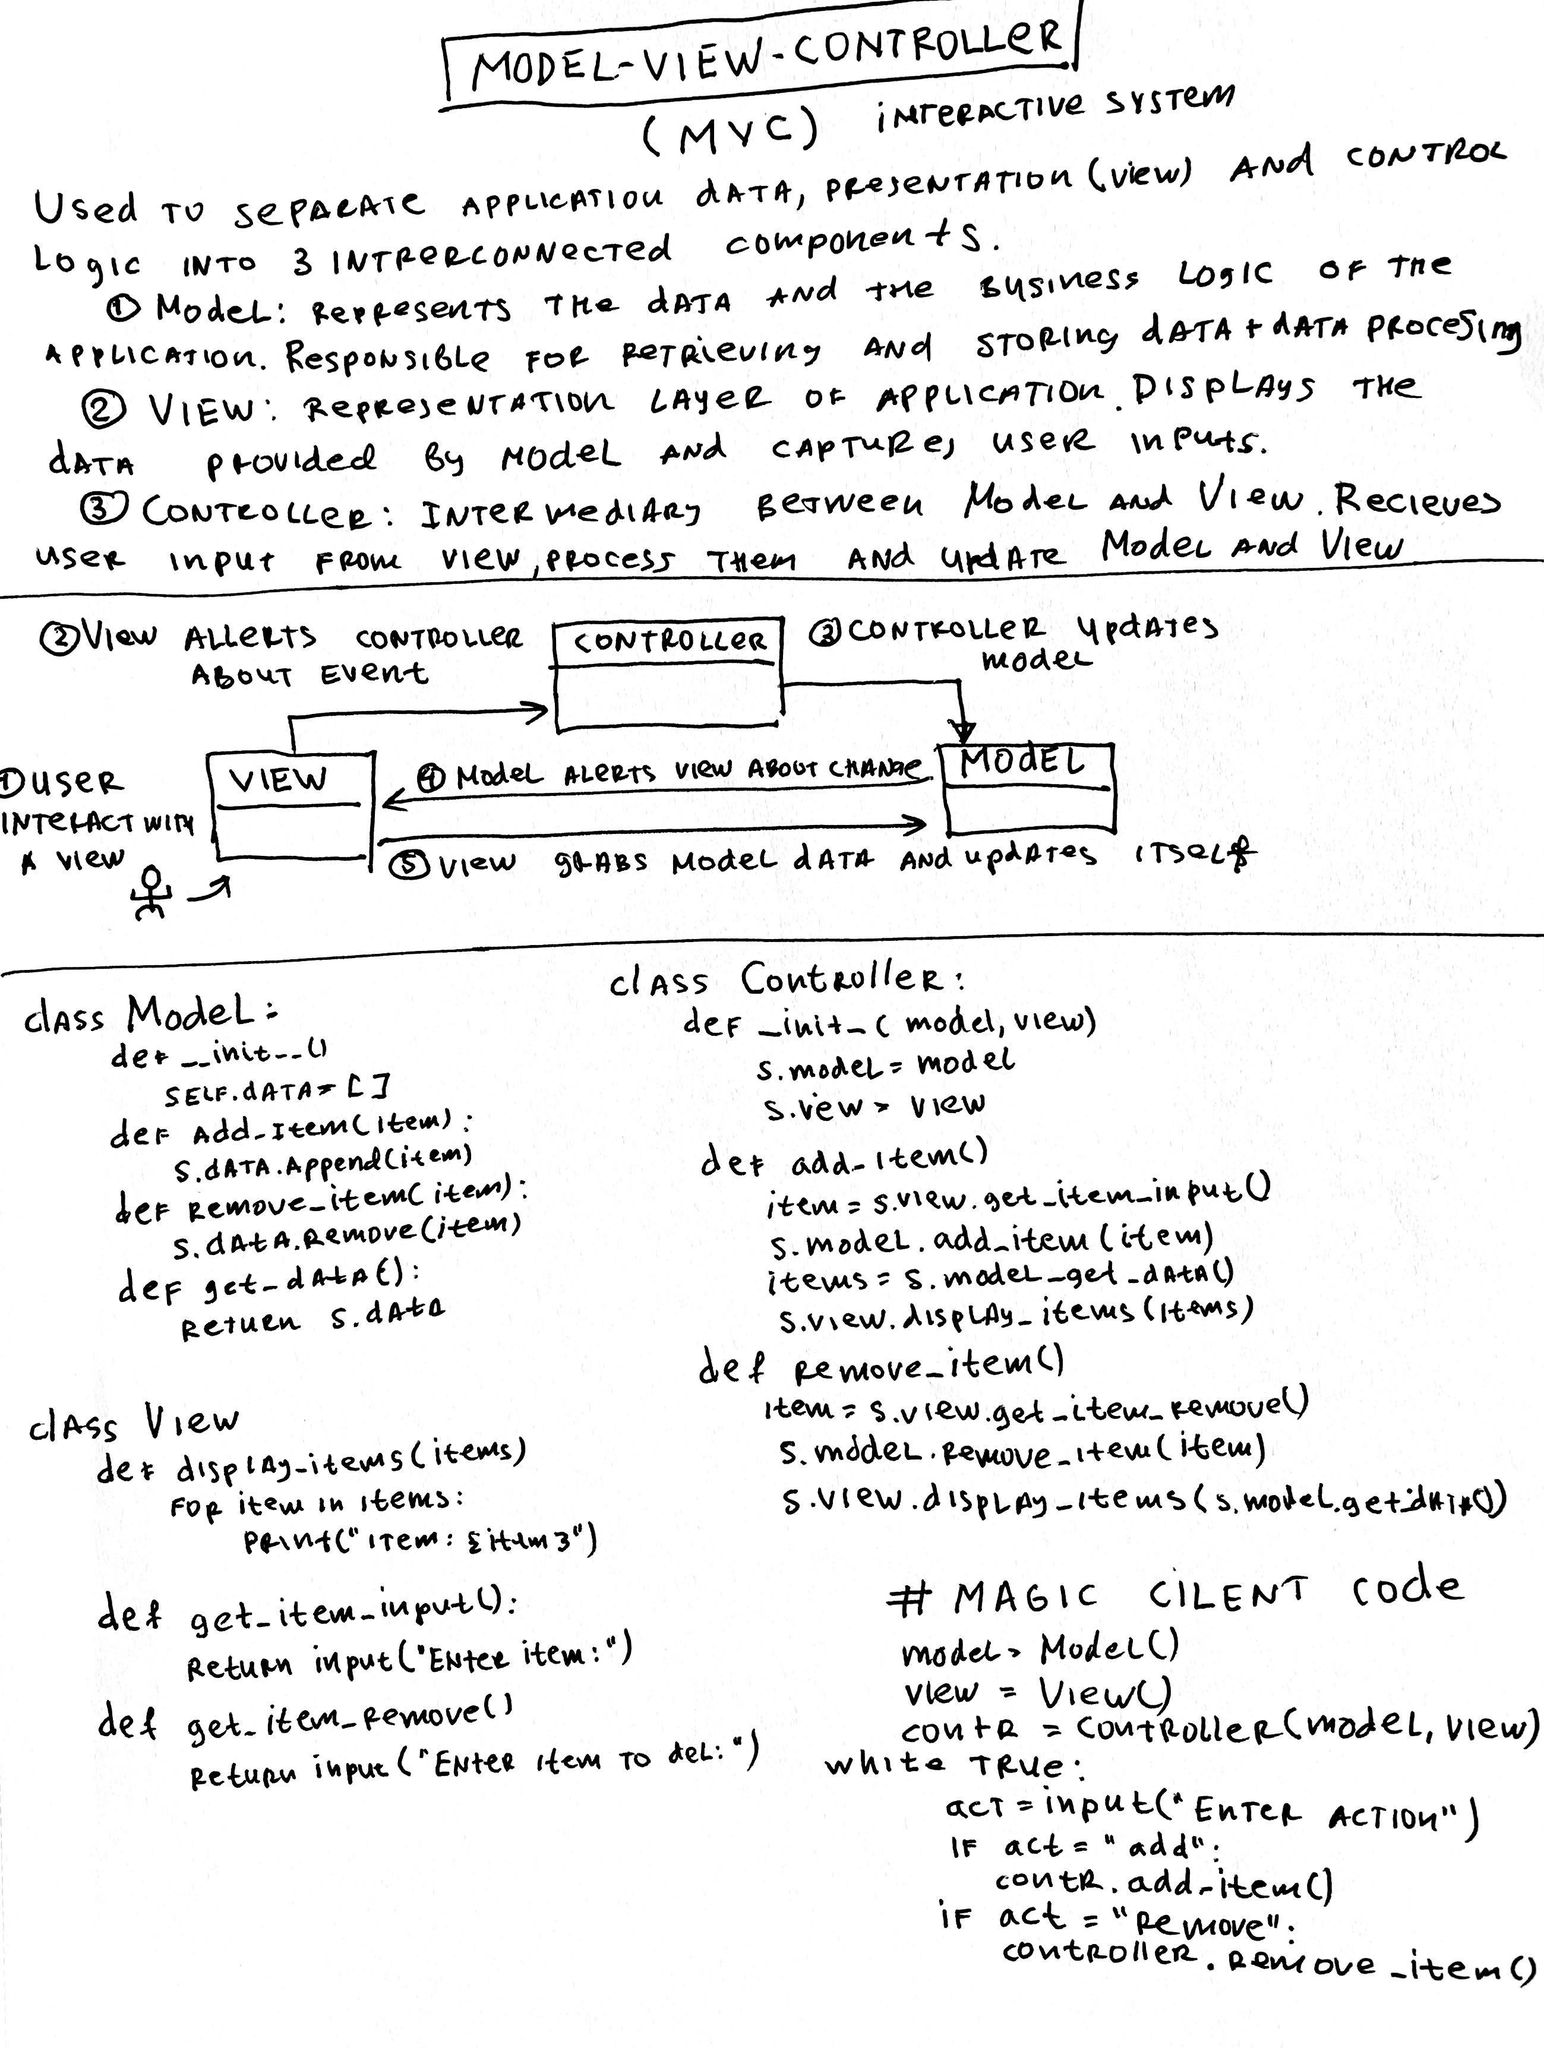 MODEL-VIEW-CONTROLLER
(MVC) INTERACTIVE SYSTEM
Used TO SEPARATE APPLICATION DATA, PRESENTATION (View) AND CONTROL
Logic INTO 3 INTRERCONNECTED components.
① Model: Represents THe DATA AND the BUSINESS LOGIC OF THe
APPLICATION. Responsible FOR RETRIEVING AND STORING DATA + DATA PROCESING
② VIEW: Representation LAYER OF APPLICATION. DISPLAYS THE
DATA PROVIDED By MODEL AND CAPTURES USER INPUTS.
③ CONTROLLER: INTERMEDIARY BETWEEN Model AND VIEW. RECIEVES
USER INPUT FROM VIEW, PROCESS THEM AND UPDATE Model AND VIEW
② VIEW ALLERTS CONTROLLER
ABOUT EVENT
CONTROLLER
③ CONTROLLER UPDATES
MODEL
① USER
INTERACT WITH
A VIEW
VIEW
④ MODEL ALERTS VIEW ABOUT CHANGE
MODEL
⑤ VIEW GRABS MODEL DATA AND UPDATES ITSELF
class Model:
def __init__()
SELF.DATA = []
def Add_Item(Item):
S.DATA.Append(item)
def Remove_item(item):
S.DATA.Remove(item)
def get_DATA():
RETURN S.DATA
class View
def display_items(items)
FOR item in items:
PRINT("ITEM: {item}")
def get_item_input():
Return input("ENTER item:")
def get_item_Remove()
Return input("ENTER ITEM TO DEL:")
class Controller:
def _init_( model, view)
S.model = model
S.view = view
def add_item()
item = S.view.get_item_input()
S.model.add_item(item)
items = S.model_get_DATA()
S.view.display_items(items)
def Remove_item()
item = S.view.get_item_Remove()
S.model.Remove_item(item)
S.view.display_items(S.model.get_data())
# MAGIC CILENT code
model = Model()
view = View()
contr = Controller(model, view)
while TRUE:
act = input("ENTER ACTION")
IF act = "add":
contr.add_item()
IF act = "Remove":
controller.Remove_item()